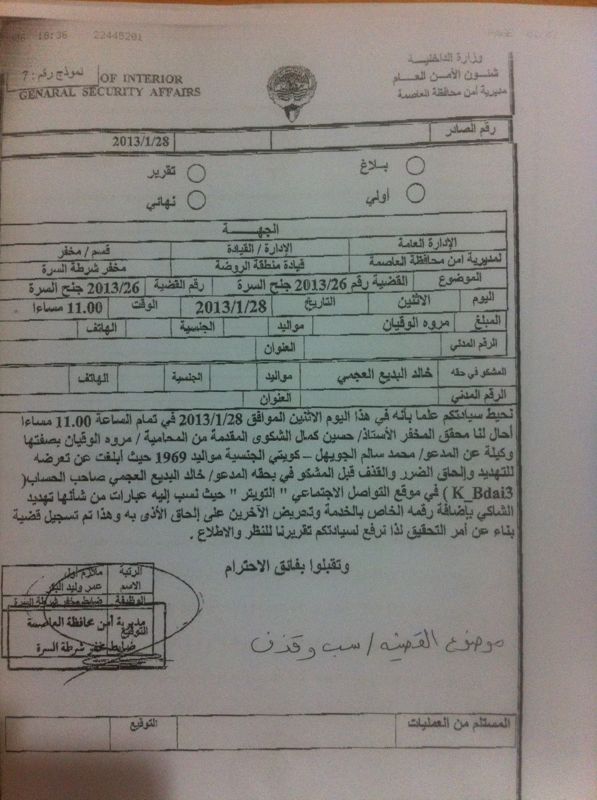 18:36 22445201
وزارة الداخلية
شئون الأمن العام
مديرية أمن محافظة العاصمة
نموذج رقم : 7
OF INTERIOR
GENARAL SECURITY AFFAIRS
رقم الصادر 2013/1/28
بلاغ تقرير
أولي نهائي
الجهة
الإدارة العامة الادارة / القيادة قسم / مخفر
لمديرية امن محافظة العاصمة قيادة منطقة الروضة مخفر شرطة السرة
الموضوع القضية رقم 2013/26 جنح السرة رقم القضية 2013/26 جنح السرة
اليوم الاثنين التاريخ 2013/1/28 الوقت 11.00 مساءا
المبلغ مروه الوقيان مواليد الجنسية الهاتف
الرقم المدني العنوان
المشكو في حقه خالد البديع العجمي مواليد الجنسية الهاتف
الرقم المدني العنوان
نحيط سيادتكم علما بأنه في هذا اليوم الاثنين الموافق 2013/1/28 في تمام الساعة 11.00 مساءا
أحال لنا محقق المخفر الأستاذ/ حسين كمال الشكوى المقدمة من المحامية / مروه الوقيان بصفتها
وكيلة عن المدعو/ محمد سالم الجويهل – كويتي الجنسية مواليد 1969 حيث أبلغت عن تعرضه
للتهديد وإلحاق الضرر والقذف قبل المشكو في بحقه المدعو/ خالد البديع العجمي صاحب الحساب(
K_Bdai3 ) في موقع التواصل الاجتماعي " التويتر " حيث نسب إليه عبارات من شأنها تهديد
الشاكي بإضافة رقمه الخاص بالخدمة وتحريض الآخرين على إلحاق الأذى به وهذا تم تسجيل قضية
بناء عن أمر التحقيق لذا نرفع لسيادتكم تقريرنا للنظر والاطلاع .
وتقبلوا بفائق الاحترام
الرتبة ملازم أول
الاسم عمر وليد
الوظيفة ضابط مخفر شرطة السرة
مديرية أمن محافظة العاصمة
التوقيع
ضابط مخفر شرطة السرة
موضوع القضية / سب وقذف
المستلم من العمليات التوقيع